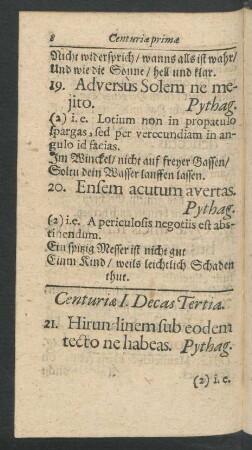 8 Centuriæ primæ
Nicht widersprich/ wanns alls ist wahr/
Und wie die Sonne/ hell und klar.
19. Adversùs Solem ne me-
jito. Pythag.
(2) i. e. Lotium non in propatulo
spargas, sed per verecundiam in an-
gulo id facias.
Im Winckel/ nicht auff freyer Gassen/
Soltu dein Wasser lauffen lassen.
20. Ensem acutum avertas.
Pythag.
(2) i. e. A periculosis negotiis est abs-
tinendum.
Ein spitzig Messer ist nicht gut
Einm Kind/ weils leichtlich Schaden
thut.
Centuriæ I. Decas Tertia.
21. Hirundinem sub eodem
tecto ne habeas. Pythag.
(2) i. e.